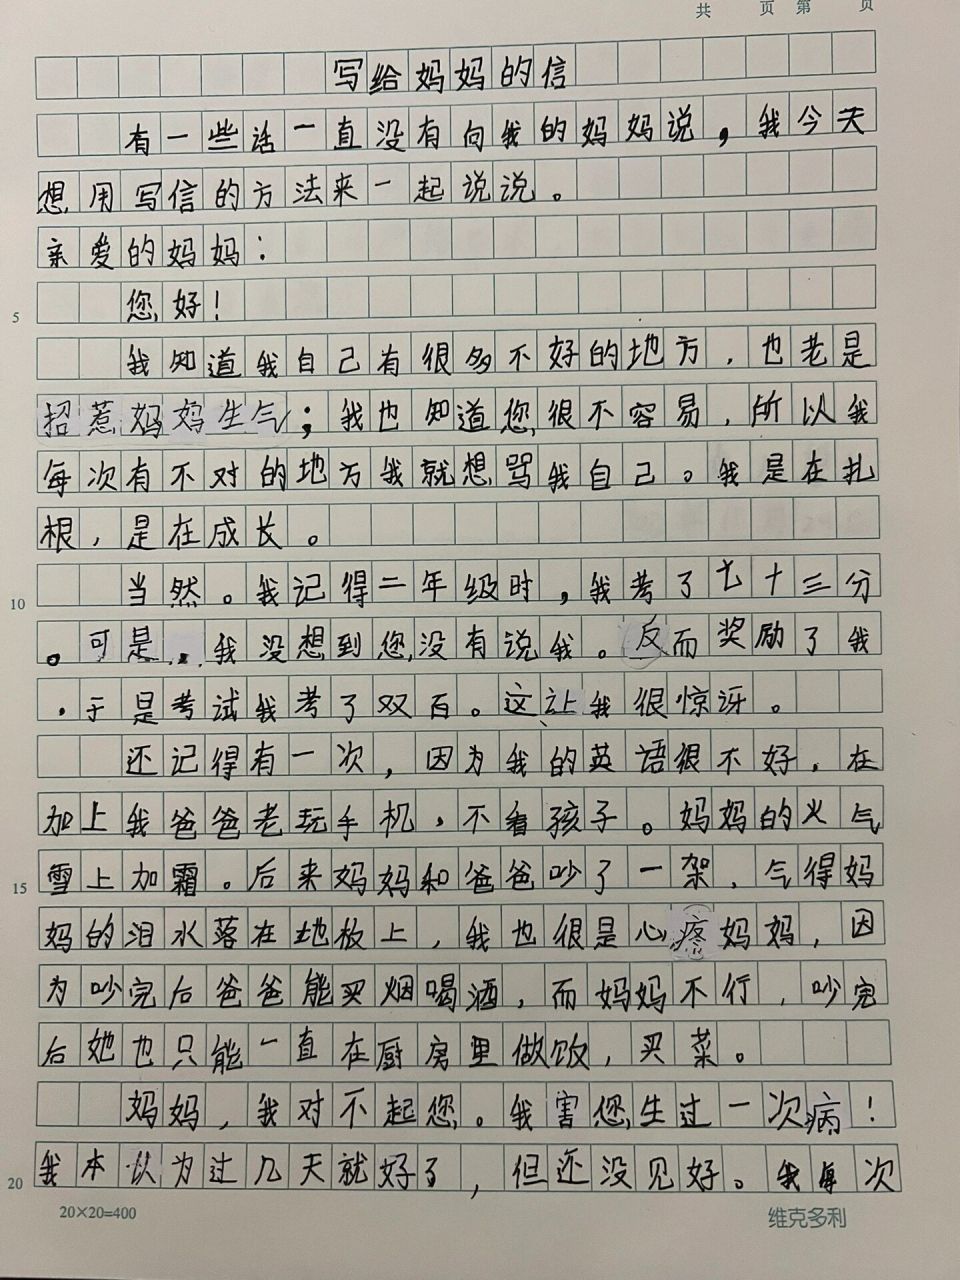 共 页 第 页
写给妈妈的信
有一些话一直没有向我的妈妈说，我今天
想用写信的方法来一起说说。
亲爱的妈妈：
5 您好！
我知道我自己有很多不好的地方，也老是
招惹妈妈生气；我也知道您很不容易，所以我
每次有不对的地方我就想骂我自己。我是在扎
根，是在成长。
10 当然。我记得二年级时，我考了七十三分
。可是，我没想到您没有说我。反而奖励了我
，于是考试我考了双百。这让我很惊讶。
还记得有一次，因为我的英语很不好，在
加上我爸爸老玩手机，不看孩子。妈妈的火气
15 雪上加霜。后来妈妈和爸爸吵了一架，气得妈
妈的泪水落在地板上，我也很是心疼妈妈，因
为吵完后爸爸能买烟喝酒，而妈妈不行，吵完
后她也只能一直在厨房里做饭，买菜。
妈妈，我对不起您。我害您生过一次病！
20 我本认为过几天就好了，但还没见好。我每次
20×20=400 维克多利